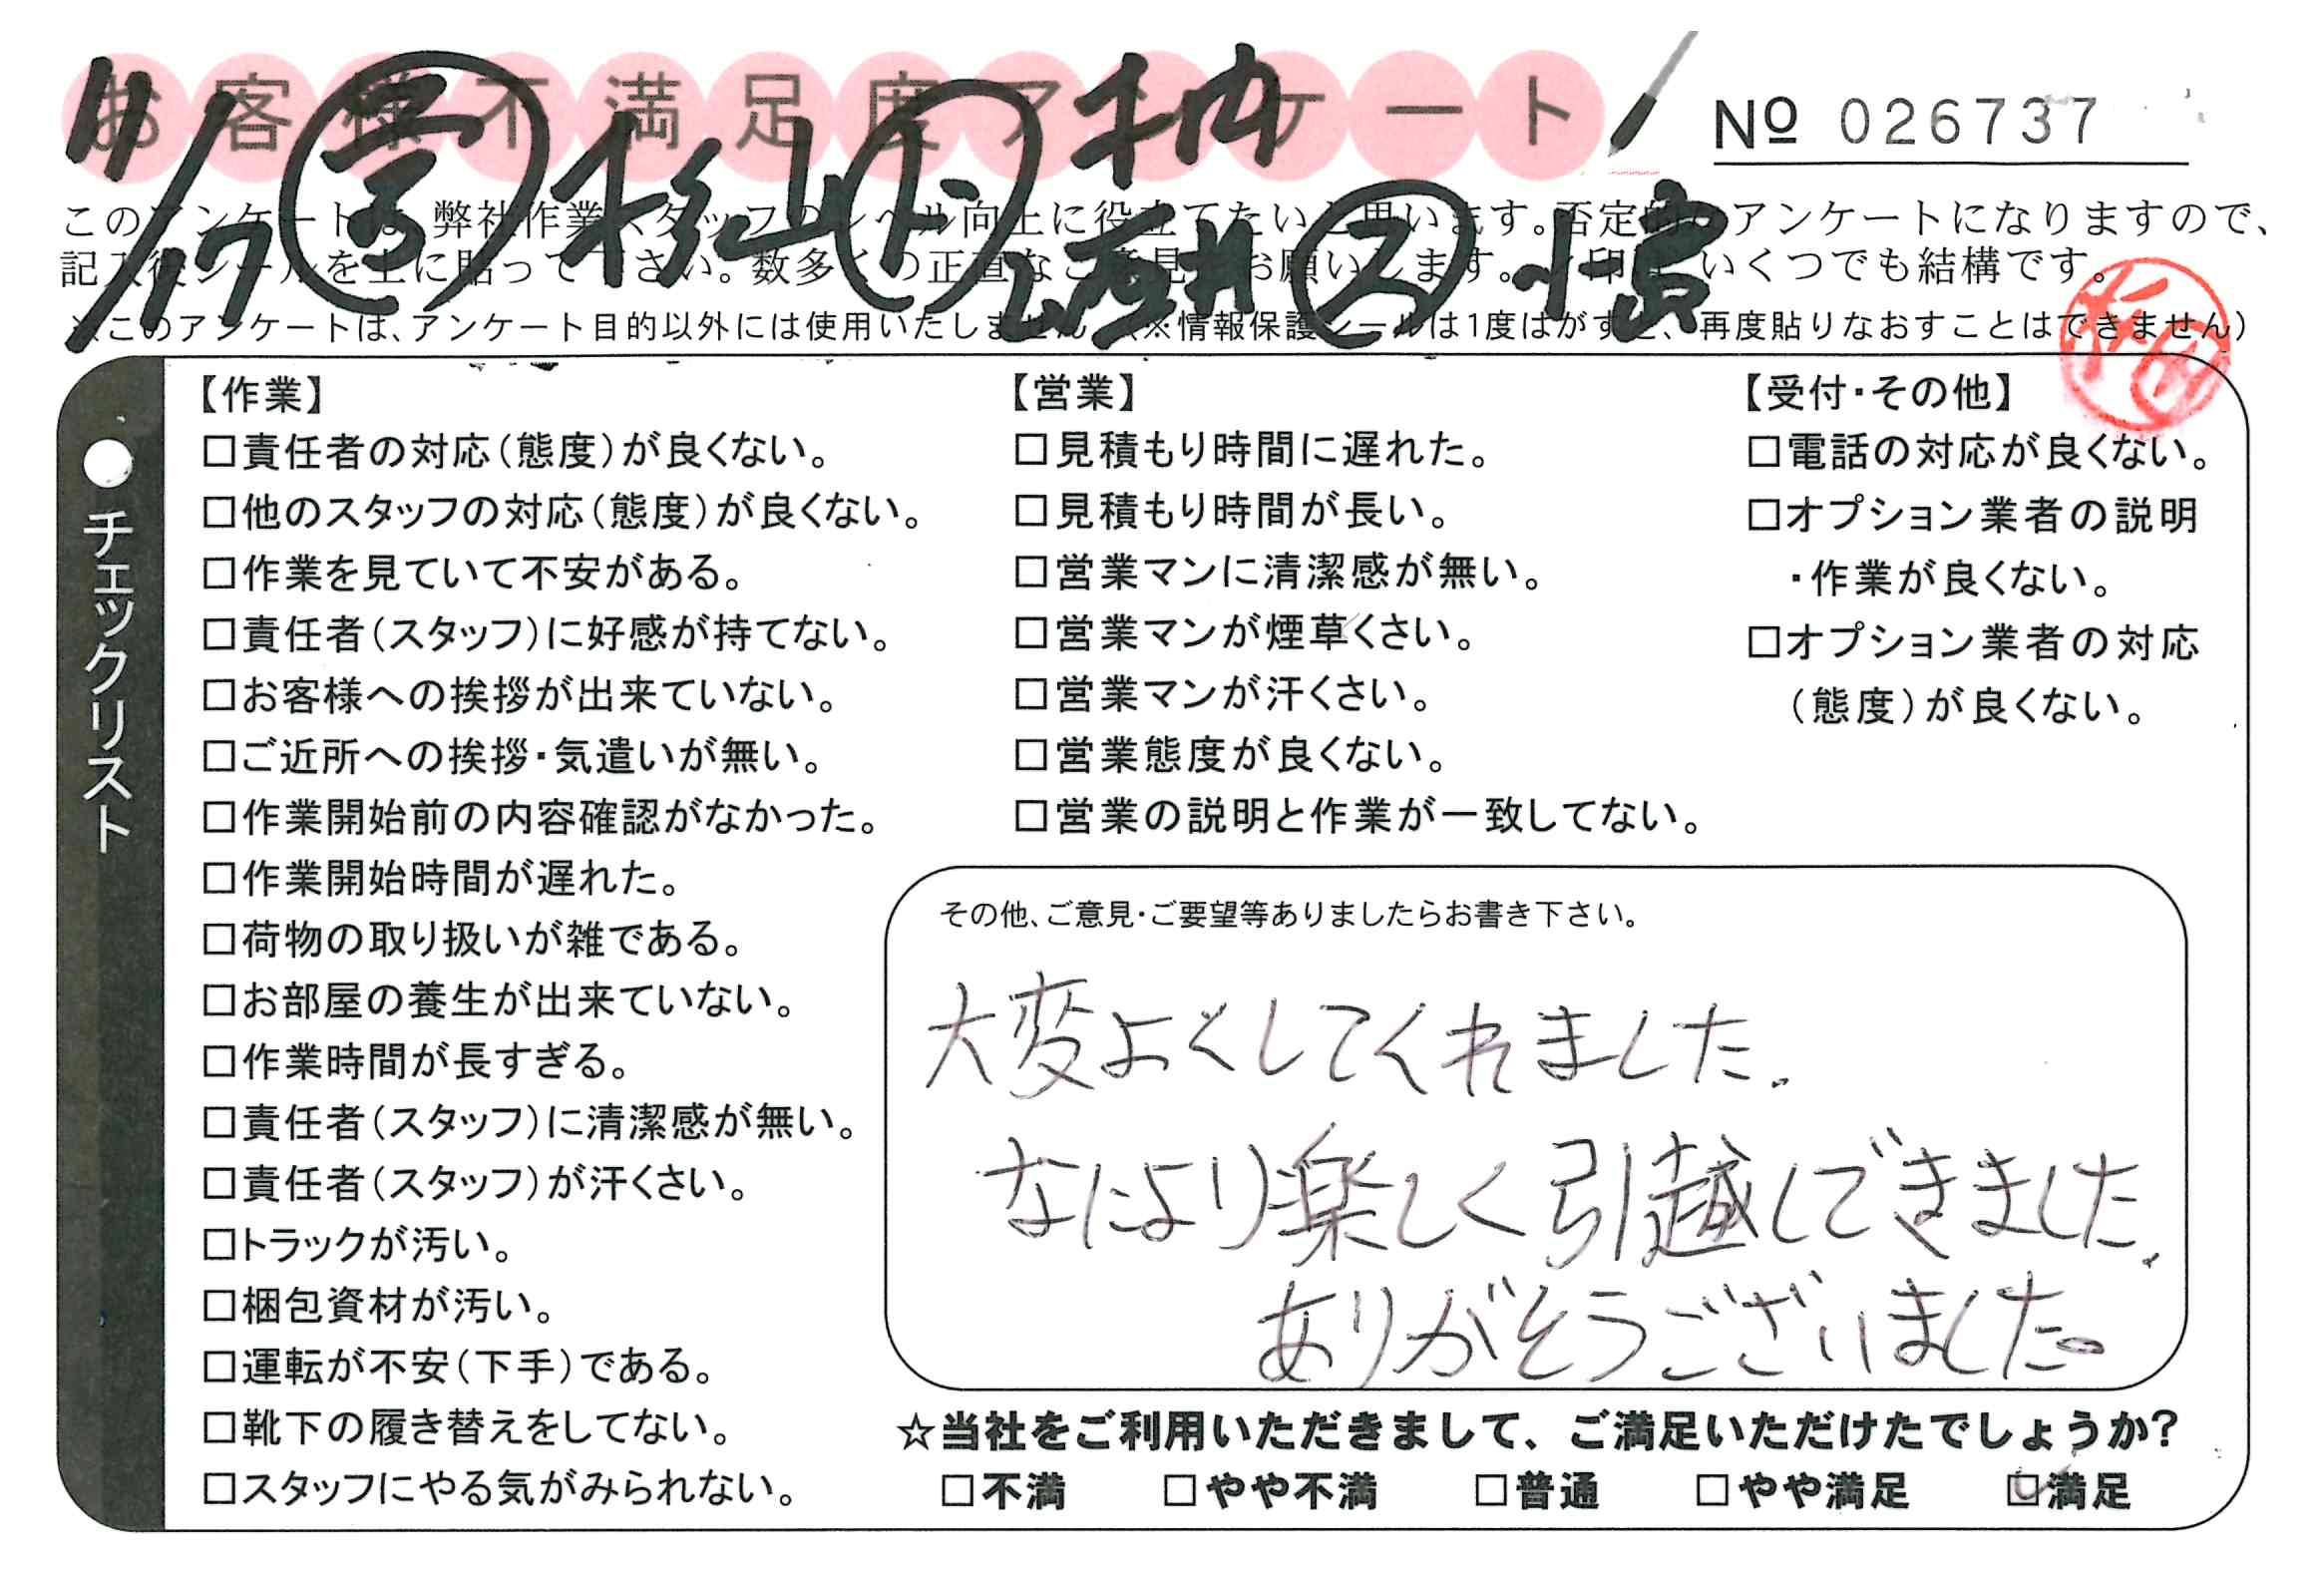 お客様不満足度アンケート
No 026737
11/17 営 杉山 ド 柚 ス
このアンケートは、弊社作業スタッフのレベル向上に役立てたいと思います。否定的なアンケートになりますので、
記入後シールを上に貼って下さい。数多くの正直なご意見をお願いします。
いくつでも結構です。
※このアンケートは、アンケート目的以外には使用いたしません
(※情報保護シールは1度はがすと、再度貼りなおすことはできません)
●チェックリスト
【作業】
□責任者の対応(態度)が良くない。
□他のスタッフの対応(態度)が良くない。
□作業を見ていて不安がある。
□責任者(スタッフ)に好感が持てない。
□お客様への挨拶が出来ていない。
□ご近所への挨拶・気遣いが無い。
□作業開始前の内容確認がなかった。
□作業開始時間が遅れた。
□荷物の取り扱いが雑である。
□お部屋の養生が出来ていない。
□作業時間が長すぎる。
□責任者(スタッフ)に清潔感が無い。
□責任者(スタッフ)が汗くさい。
□トラックが汚い。
□梱包資材が汚い。
□運転が不安(下手)である。
□靴下の履き替えをしてない。
□スタッフにやる気がみられない。
【営業】
□見積もり時間に遅れた。
□見積もり時間が長い。
□営業マンに清潔感が無い。
□営業マンが煙草くさい。
□営業マンが汗くさい。
□営業態度が良くない。
□営業の説明と作業が一致してない。
【受付・その他】
□電話の対応が良くない。
□オプション業者の説明
・作業が良くない。
□オプション業者の対応
(態度)が良くない。
その他、ご意見・ご要望等ありましたらお書き下さい。
大変よくしてくれました.
なにより楽しく引越しできました.
ありがそうございました。
☆当社をご利用いただきまして、ご満足いただけたでしょうか?
□不満 □やや不満 □普通 □やや満足 ☑満足